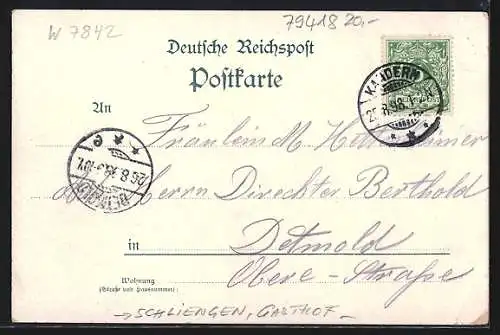 W 7842
79418 20.-
Deutsche Reichspost
Postkarte
KANDERN
25.8.98
An
Fräulein M.
Herrn Direchter Berthold
26.8.98
DETMOLD
in Detmold
Obere-Straße
Wohnung
(Straße und Hausnummer)
→ SCHLIENGEN, GASTHOF -